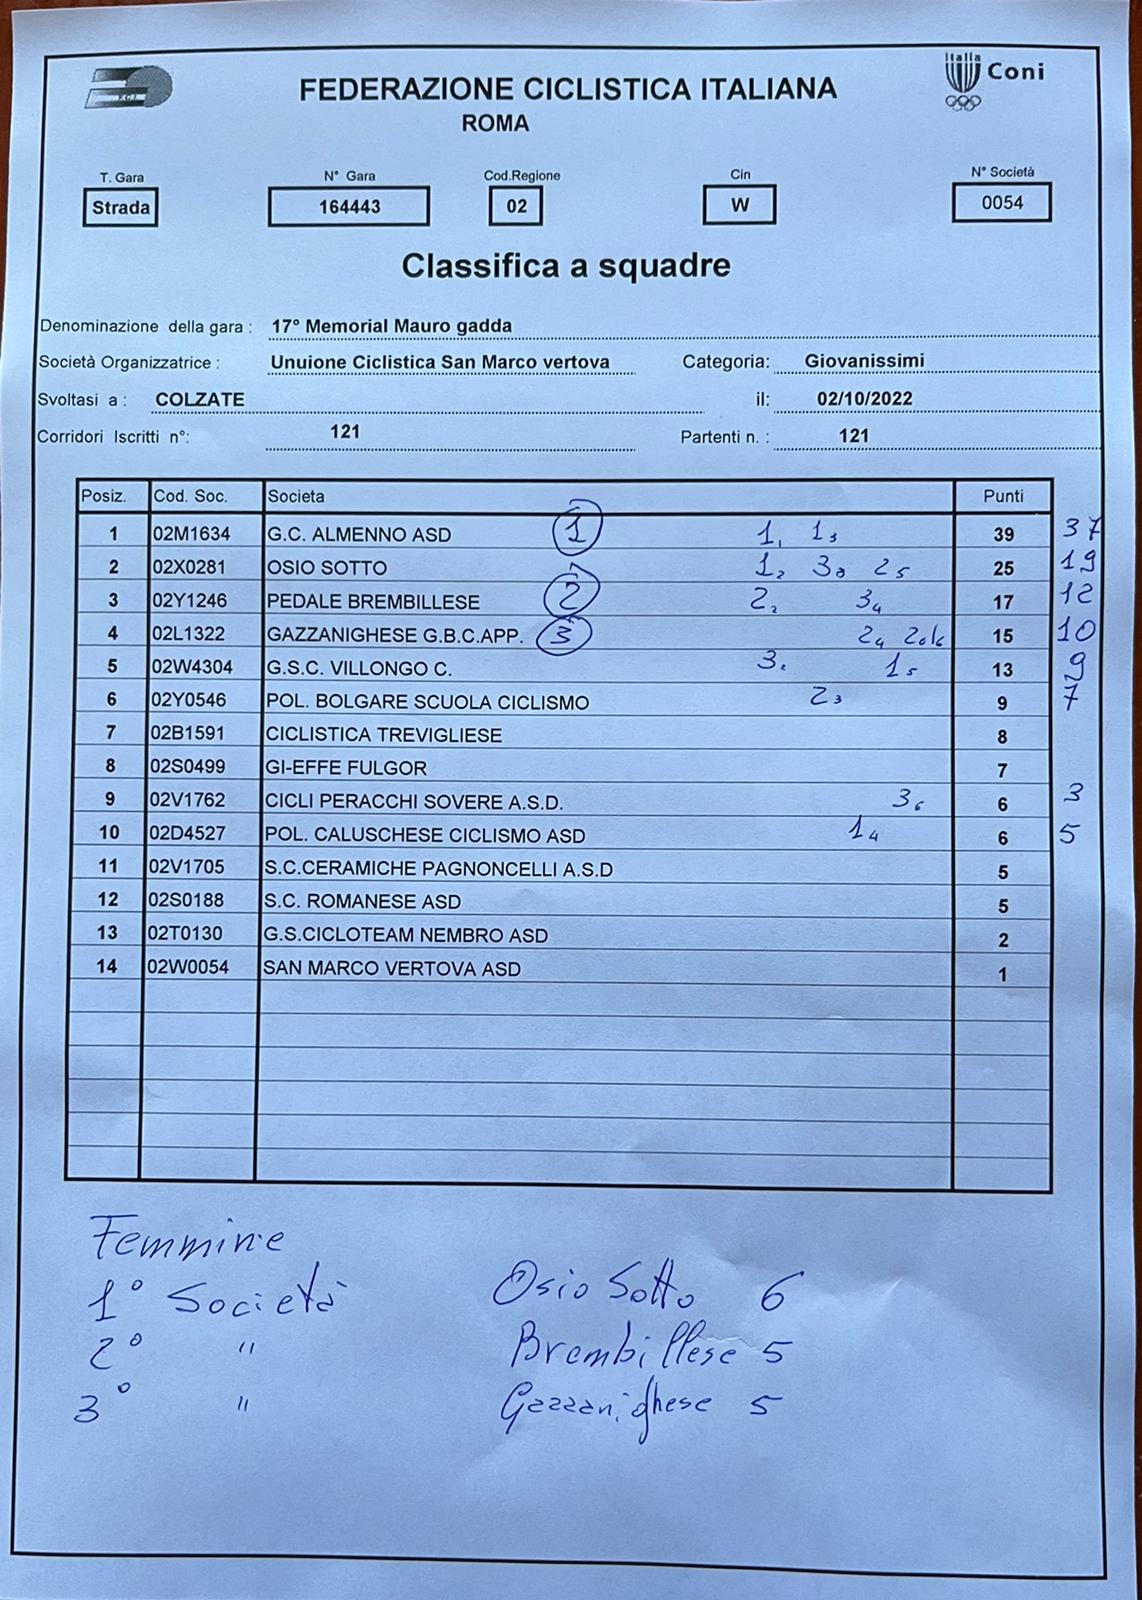 F.C.I.
FEDERAZIONE CICLISTICA ITALIANA
ROMA
Italia
Coni
T. Gara
N° Gara
Cod.Regione
Cin
N° Società
Strada
164443
02
W
0054
Classifica a squadre
Denominazione della gara : 17° Memorial Mauro gadda
Società Organizzatrice : Unuione Ciclistica San Marco vertova Categoria: Giovanissimi
Svoltasi a : COLZATE il: 02/10/2022
Corridori Iscritti n°: 121 Partenti n. : 121
Posiz. Cod. Soc. Societa Punti
1 02M1634 G.C. ALMENNO ASD 1 1 1 1 3 39 37
2 02X0281 OSIO SOTTO 1 2 3 3 2 5 25 19
3 02Y1246 PEDALE BREMBILLESE 2 2 2 3 4 17 12
4 02L1322 GAZZANIGHESE G.B.C.APP. 3 2 4 15 10
5 02W4304 G.S.C. VILLONGO C. 3 2 1 5 13 9
6 02Y0546 POL. BOLGARE SCUOLA CICLISMO 2 3 9 7
7 02B1591 CICLISTICA TREVIGLIESE 8
8 02S0499 GI-EFFE FULGOR 7
9 02V1762 CICLI PERACCHI SOVERE A.S.D. 3 6 6 3
10 02D4527 POL. CALUSCHESE CICLISMO ASD 1 4 6 5
11 02V1705 S.C.CERAMICHE PAGNONCELLI A.S.D 5
12 02S0188 S.C. ROMANESE ASD 5
13 02T0130 G.S.CICLOTEAM NEMBRO ASD 2
14 02W0054 SAN MARCO VERTOVA ASD 1
Femmine
1° Società Osio Sotto 6
2° " Brembillese 5
3° " Gazzanighese 5